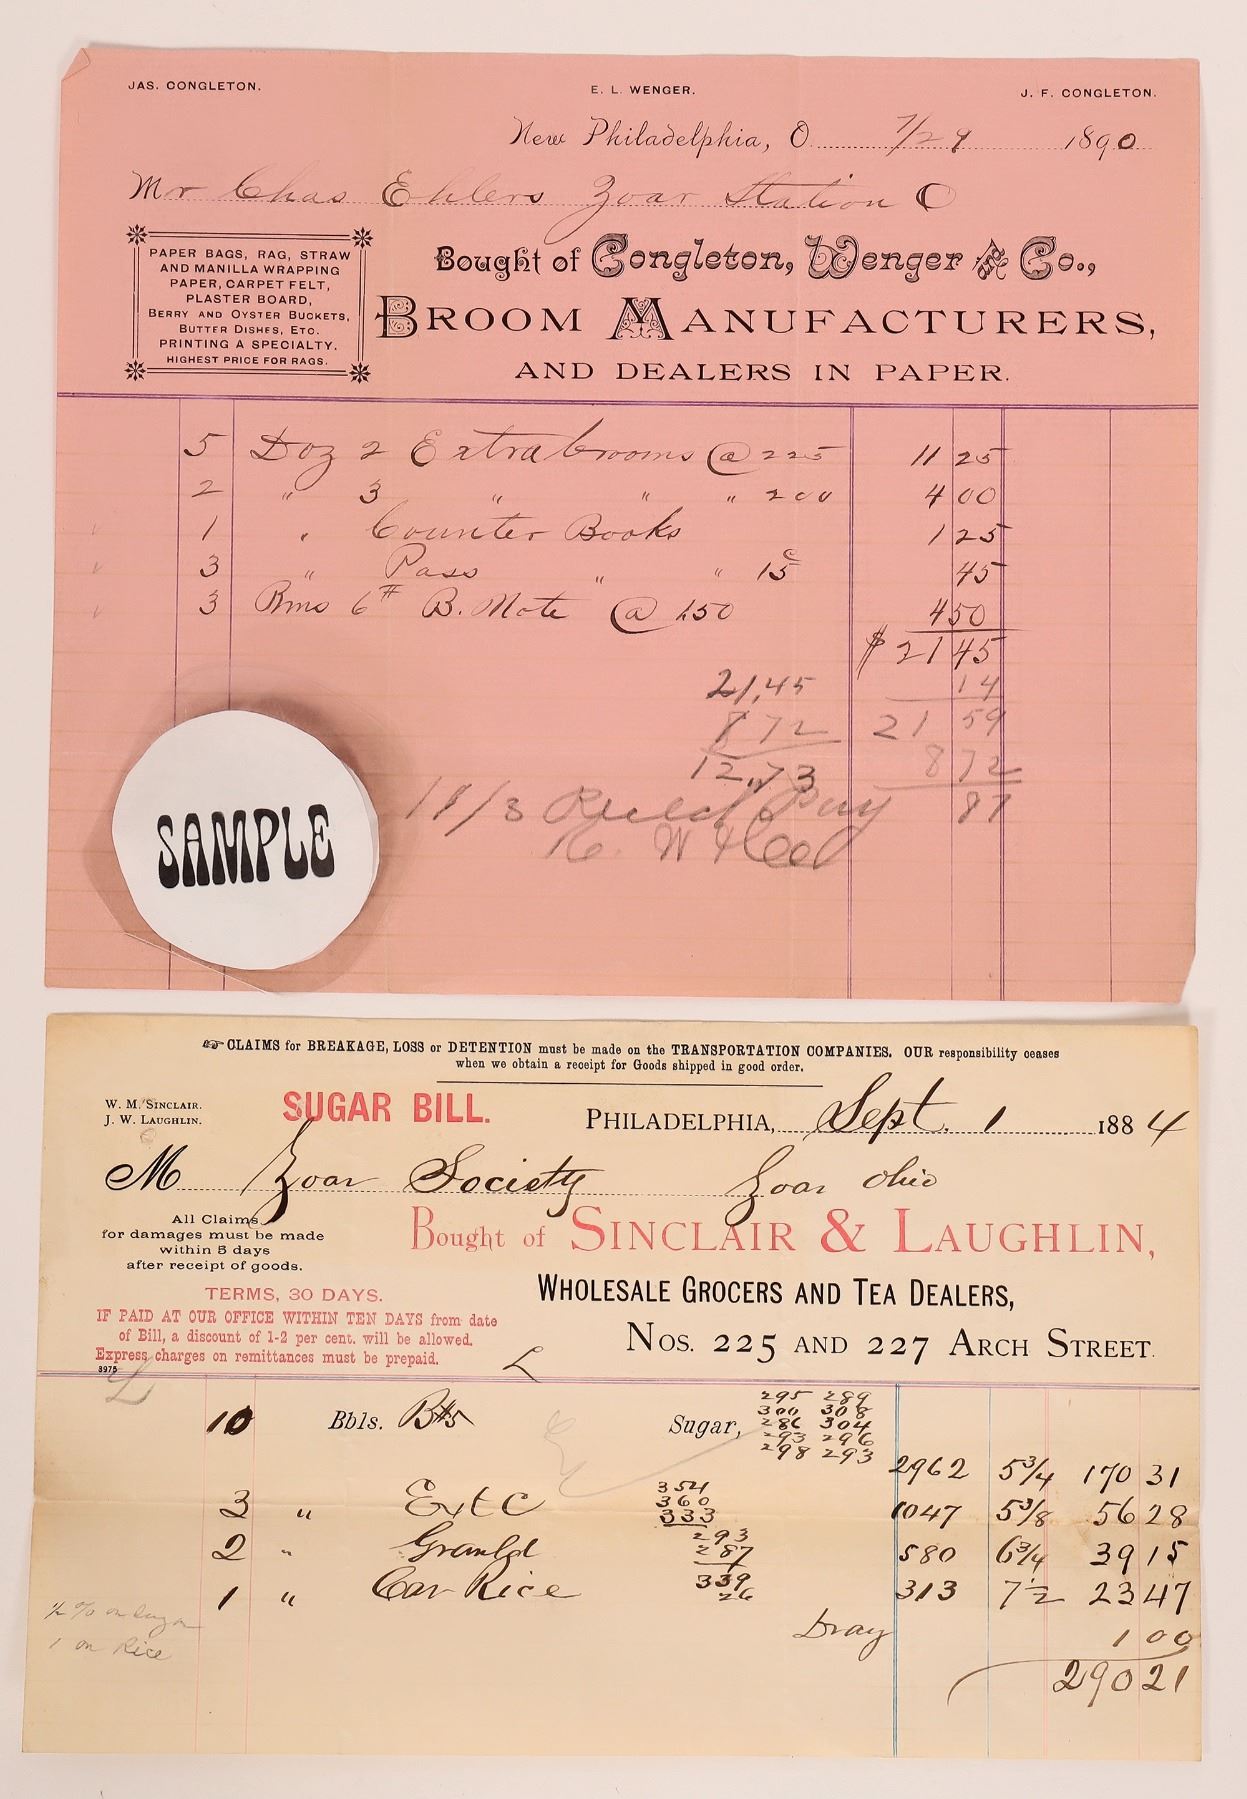 JAS. CONGLETON. E. L. WENGER. J. F. CONGLETON.
New Philadelphia, O. 7/29 1890
Mr Chas Ehlers Zoar Station O
PAPER BAGS, RAG, STRAW
AND MANILLA WRAPPING
PAPER, CARPET FELT,
PLASTER BOARD,
BERRY AND OYSTER BUCKETS,
BUTTER DISHES, ETC.
PRINTING A SPECIALTY.
HIGHEST PRICE FOR RAGS.
Bought of Congleton, Wenger and Co.,
BROOM MANUFACTURERS,
AND DEALERS IN PAPER.
5 Doz 2 Extra brooms @ 225 11 25
2 " 3 " " " 200 4 00
1 " Counter Books 1 25
3 " Pass " " 15c 45
3 Rms 6# B. Note @ 150 4 50
$21 45
21,45 14
8 72 21 59
12,73 8 72
87
11/3
SAMPLE
CLAIMS for BREAKAGE, LOSS or DETENTION must be made on the TRANSPORTATION COMPANIES. OUR responsibility ceases
when we obtain a receipt for Goods shipped in good order.
W. M. SINCLAIR.
J. W. LAUGHLIN.
SUGAR BILL.
PHILADELPHIA, Sept. 1 1884
M Zoar Society Zoar Ohio
All Claims
for damages must be made
within 5 days
after receipt of goods.
Bought of SINCLAIR & LAUGHLIN,
TERMS, 30 DAYS.
IF PAID AT OUR OFFICE WITHIN TEN DAYS from date
of Bill, a discount of 1-2 per cent. will be allowed.
Express charges on remittances must be prepaid.
3975
WHOLESALE GROCERS AND TEA DEALERS,
NOS. 225 AND 227 ARCH STREET.
295 289
300 308
286 304
293 296
298 293
10 Bbls. Sugar, 2962 5 3/4 170 31
354
360
333
3 " Ext C 1047 5 3/8 56 28
293
287
2 " Granld 580 6 3/4 39 15
339
26
1 " Car Rice 313 7 1/2 23 47
Dray 1 00
290 21
1 on Rice